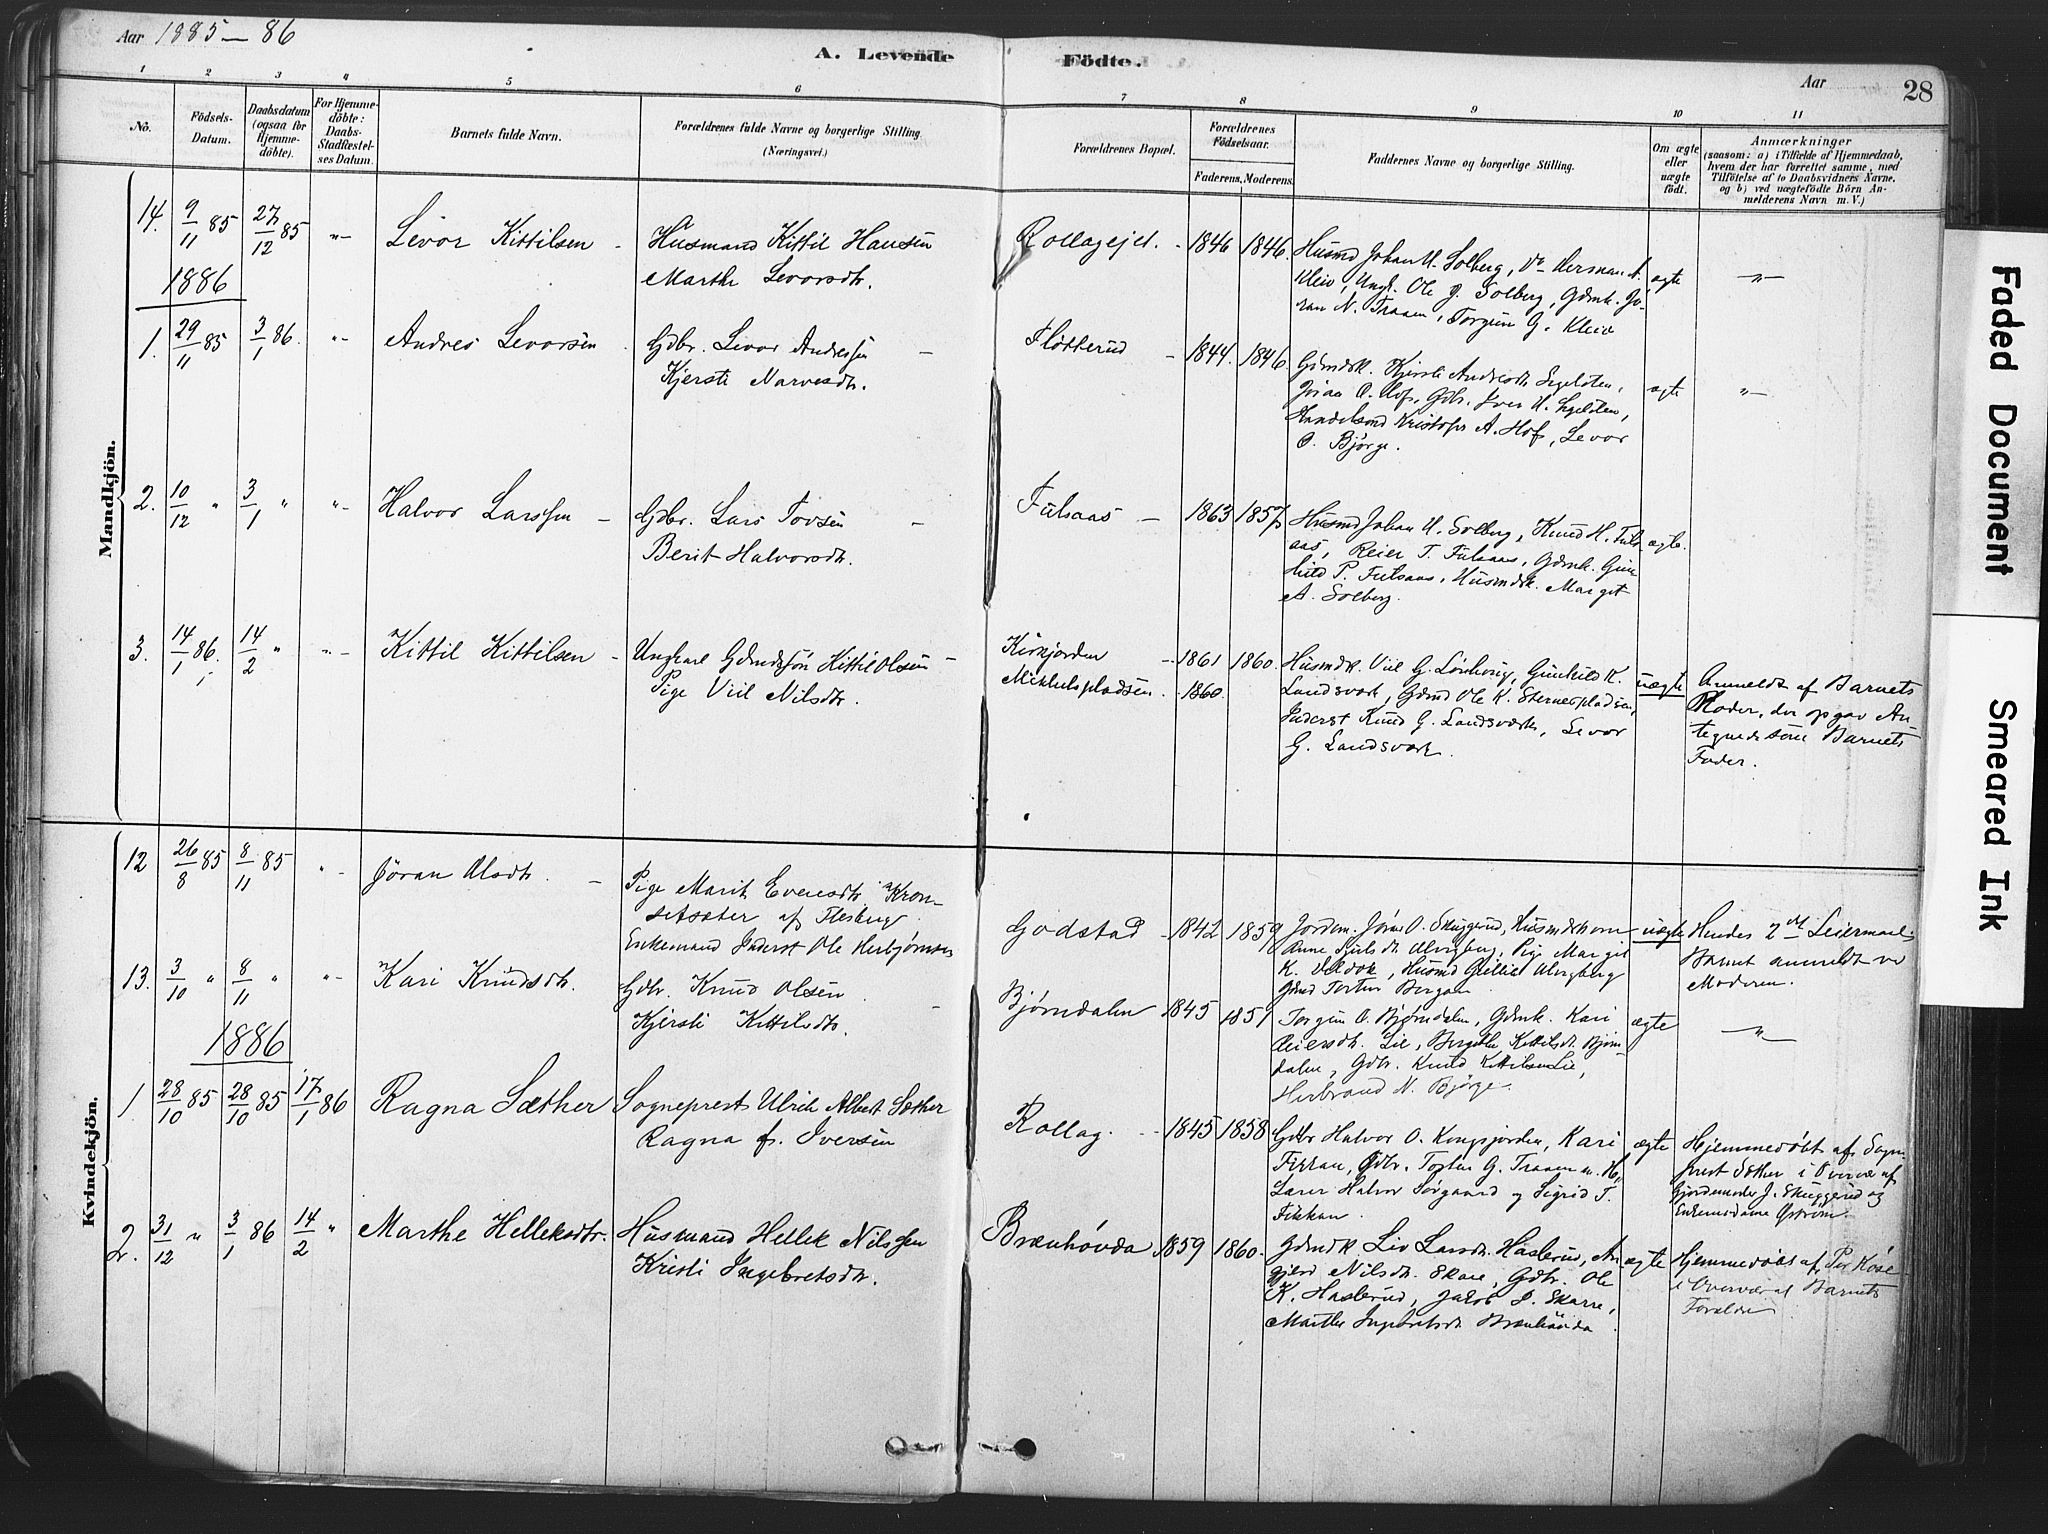 Aar 1885-86
A. Levende Födte.
Aar
28
1 2 3 4 5 6 7 8 9 10 11
No.
Födsels-Datum.
Daabsdatum (ogsaa for Hjemmedöbte).
For Hjemmedöbte: Daabs-Stadfæstelses Datum.
Barnets fulde Navn.
Forældrenes fulde Navne og borgerlige Stilling. (Næringsvei.)
Forældrenes Bopæl.
Forældrenes Födselsaar.
Faderens. Moderens.
Faddernes Navne og borgerlige Stilling.
Om ægte eller uægte födt.
Anmærkninger
(saasom: a) i Tilfælde af Hjemmedaab, hvem der har forrettet samme, med Tilföielse af to Daabsvidners Navne. og b) ved uægtefödte Börn Anmelderens Navn m. V.)
Mandkjön.
14. 9/11 85 27/12 85 "- Levor Kittilsen -
Husmand Kittil Hansen
Marthe Levorsdtr.
Rollagejet. - 1846 1846.
Husmd Johan H. Solberg, Do Herman A.
Kleiv, Ungk. Ole J. Solberg, Gdmk. Jö-
ran N. Traaen, Torgun G. Kleiv
ægte
"-
1886
1. 29/11 85 3/1 86. "- Andres Levorsen
Gdbr. Levor Andresen -
Kjersti Narvesdtr.
Fløtterud - 1844. 1846.
Gdmdsk. Kjersti Andresdtr.
Jöran O. Hof, Gdbr. Iver
Handelsmd Kristofer A. Hof, Levor
O. Bjørge.
ægte
"-
2. 10/12 " 3/1 " "- Halvor Larssen -
Gdbr. Lars Tovsen -
Berit Halvorsdtr.
Fulsaas - 1863 1857
Husmd Johan H. Solberg, Knud H. Fuls-
aas, Reier T. Fulsaas, Gdmk. Gun-
hild P. Fulsaas, Husmdsk. Margit
A. Solberg.
ægte.
3. 14/1 86. 14/2 " "- Kittil Kittilsen -
Ungkarl Gdmdssøn Kittil Olsen -
Pige Viil Nilsdtr.
Kirkjorden - 1861 1860.
Mikkelspladsen. 1860.
Husmdk. Viil G. Lönhovig, Gunhild K.
Landsverk, Gdmd Ole K. Sternespladsen,
Inderst Knud G. Landsverk, Levor
G. Landsverk.
uægte
Anmeldt af Barnets
Moder, der opgav An-
tegnede som Barnets
Fader.
Kvindekjön.
12 26/8 85 8/11 85 "- Jøran Olsdtr. -
Pige Marit Evensdtr. Kron-
setsæter af Flesberg
Enkemand Inderst Ole Herbjørnsen
Godstad - 1842 1859
Jordem. Jøran O. Skuggerud, Husmdskone
Anne Ulvsberg, Pige Margit
K. Veldok, Husmd Gullik Ulvsberg
Gdmd Torsten Bergan
uægte
Hendes 2det Leiermaal.
Barnet anmeldt ved
Moderen.
13. 3/10 " 8/11 " "- Kari Knudsdtr.
Gdbr. Knud Olsen -
Kjersti Kittilsdtr.
Bjørndalen 1845 1851
Torgun O. Bjørndalen, Gdmk. Kari
Reiersdtr. Lie, Bergitte Kittilsdt. Bjørn-
dalen, Gdbr. Knud Kittilsen Lie,
Herbrand N. Bjørge.
ægte
"-
1886
1. 28/10 85 28/10 85 17/1 86 Ragna Sæther
Sogneprest Ulrik Albert Sæther
Ragna f. Iversen
Rollag. - 1845 1858
Gdbr Halvor O. Kongsjorden, Kari
Fikkan, Gdbr. Tosten G. Traaen
Lærer Halvor Sørgaard og Sigrid T.
Fikkan.
ægte
Hjemmedøbt af Sogne-
prest Sæther i Overvær af
Gjordemoder J. Skuggerud og
Enkemadame Østrøm.
2. 31/12 " 3/1 86 14/2 " Marthe Helleksdtr.
Husmand Hellek Nilssen
Kristi Ingebretsdtr.
Brænhøvda 1859 1860.
Gdmdk. Liv Larsdtr. Haslerud, An-
gjerd Nilsdtr. Skare, Gdbr. Ole
K. Haslerud, Jakob P. Skarre,
Marthe Ingebretsdt. Brænhøvda
ægte
Hjemmedøbt af Per Kåse
i Overvær af Barnets
Forældre
Faded Document
Smeared Ink